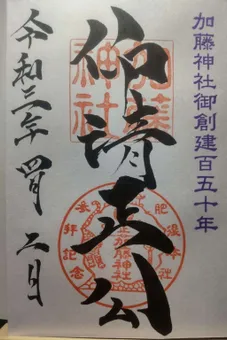 加藤神社御創建百五十年
仰清正公
加藤神社
加藤神社
参拝記念
令和三年四月二日